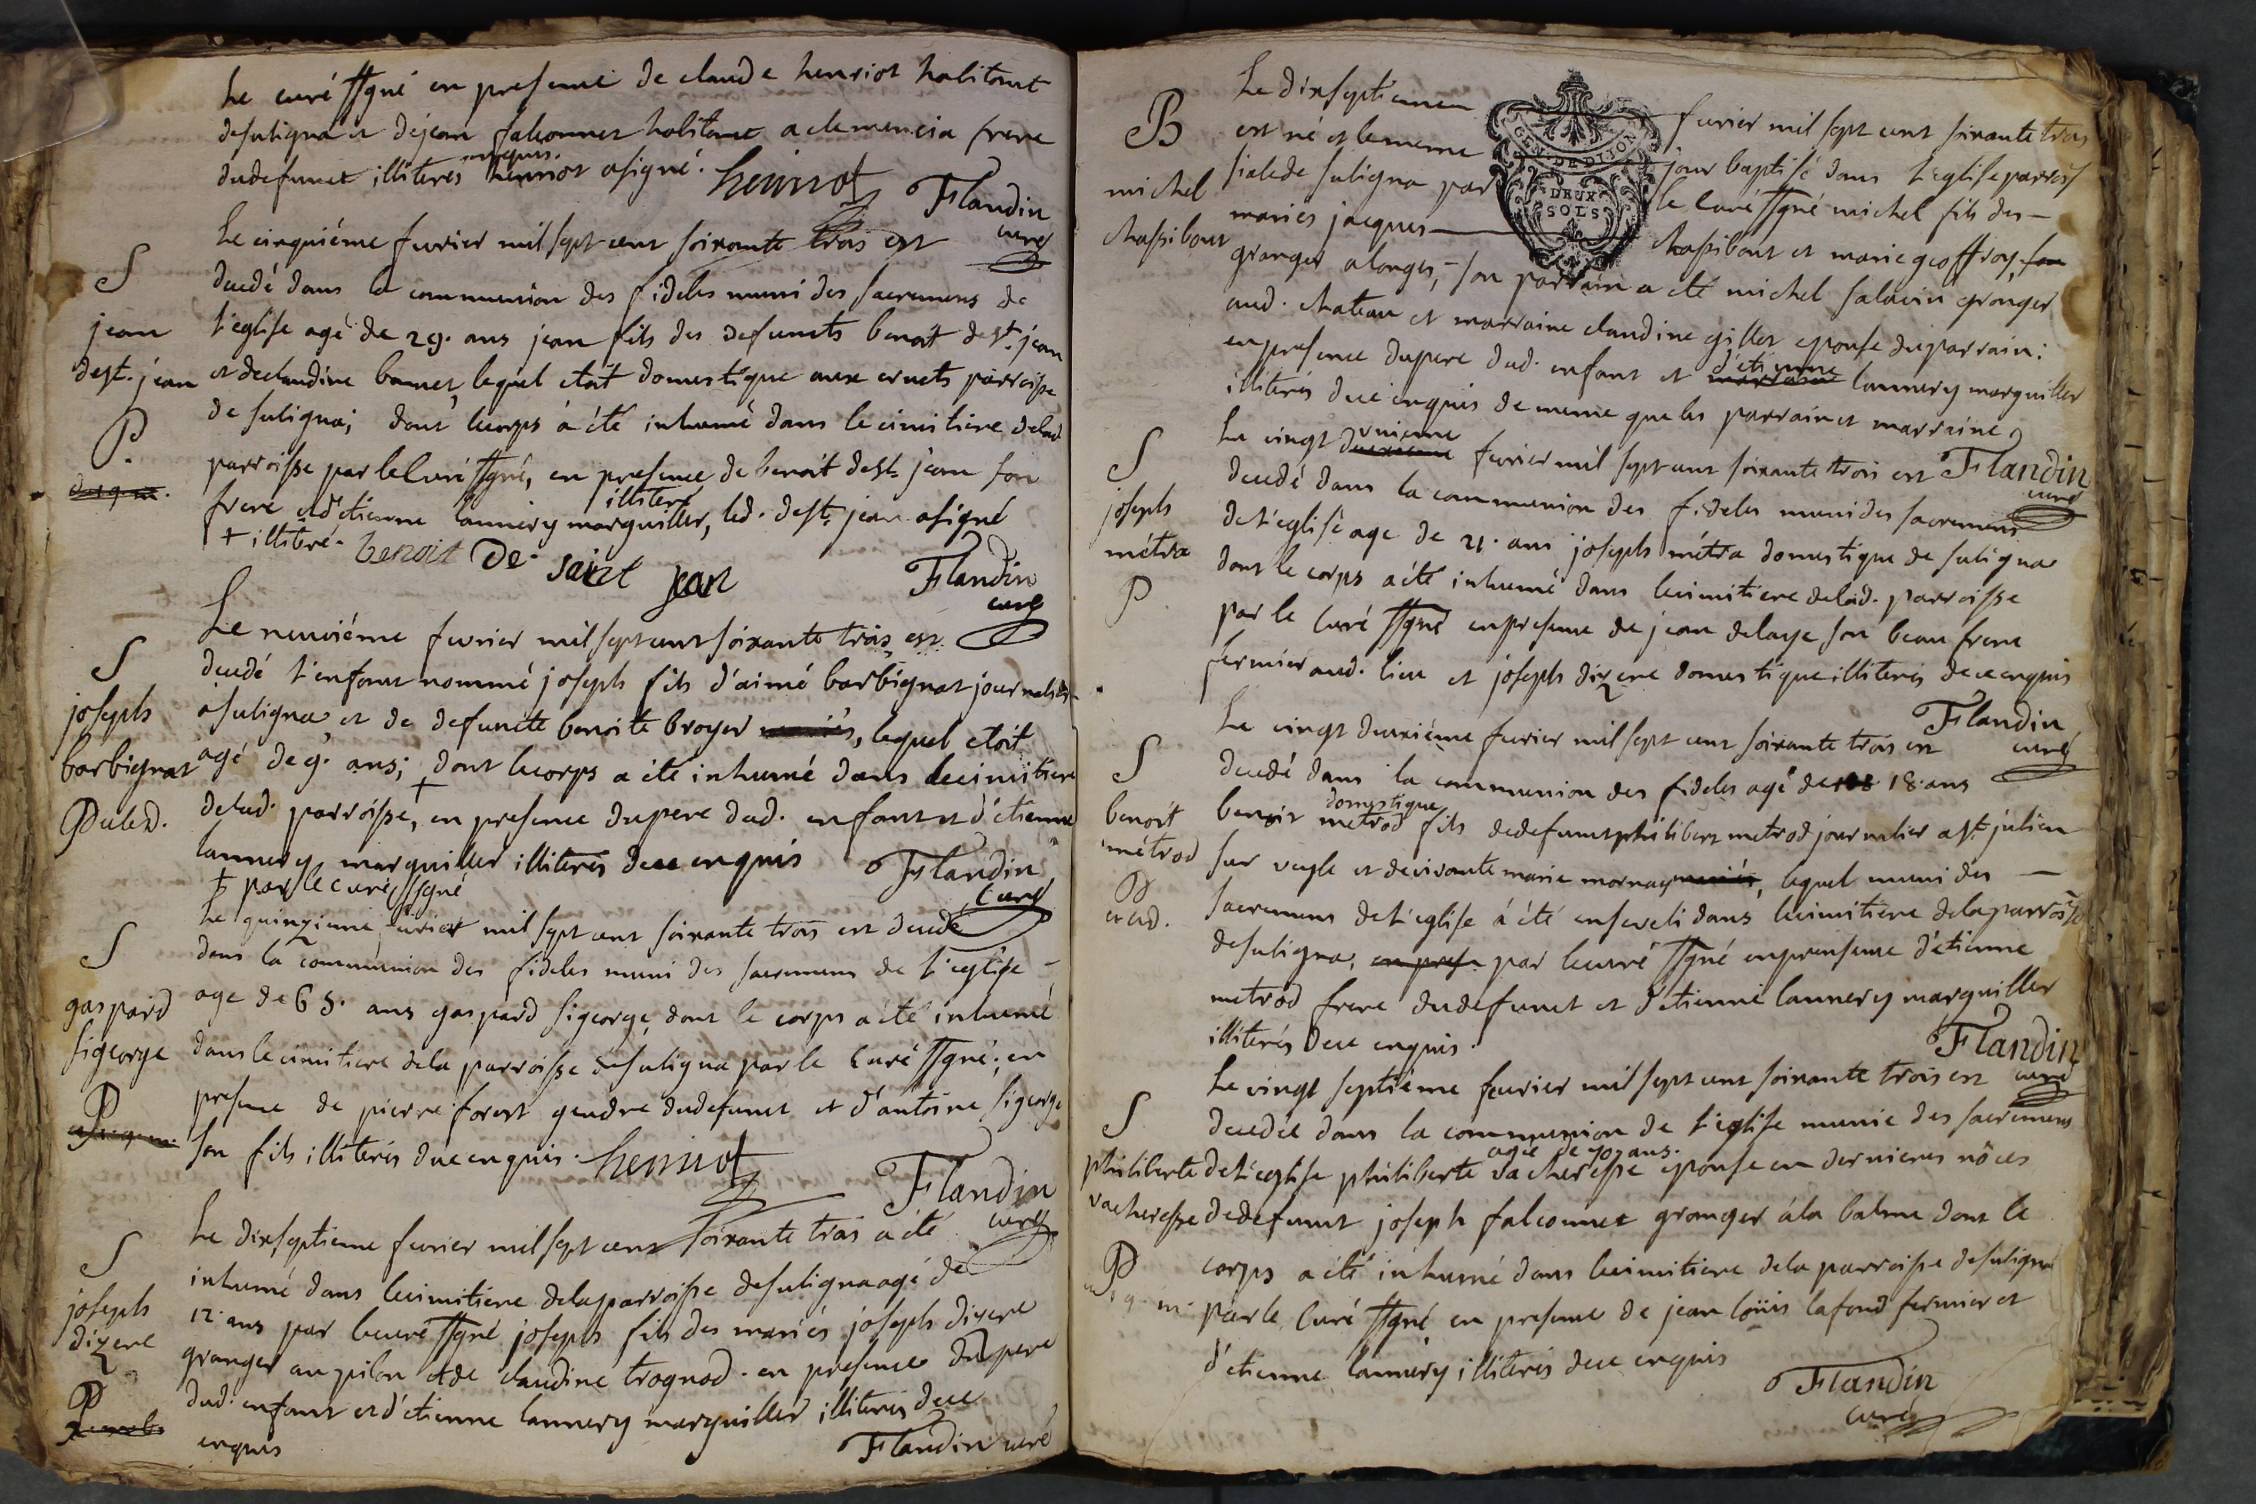 Le curé ssgné en presence de claude henriot habitant
de suligna et de jean falconnet habitant a clemencia frere
du defunct illiterés enquis henriot a signé. henriot Flandin
curé
Le cinquiéme fevrier mil sept cent soixante trois est
S
decedé dans la communion des fideles muni des sacremens de
jean
l'eglise agé de 29. ans jean fils des defuncts benoit de st. jean
de st. jean
et de claudine bonnet, lequel etoit domestique aux cruets parroisse
P.
de suligna; dont le corps à été inhumé dans le cimitiere de lad
parroisse par le Curé ssgné, en presence de benoit de st. jean son
frere et d'etienne lannery marguiller illiteré, led. de st. jean a signé
+ illiteré. benoit De saint jean Flandin
curé
Le neuviéme fevrier mil sept cent soixante trois est
S
decedé l'enfant nommé joseph fils d'aimé barbignat journalier
joseph
a suligna et de defuncte benoite broyer mariés, lequel etoit
barbignat
agé de 9. ans; + dont le corps a été inhumé dans le cimitiere
P
de lad. parroisse, en presence du pere dud. enfant et d'étienne
lannery marguiller illiterés de ce enquis Flandin
+ par le curé ssgné curé
Le quinzieme fevrier mil sept cent soixante trois est decedé
S
dans la communion des fideles muni des sacremens de l'eglise
gaspard
age de 65. ans gaspard sigeorge, dont le corps a été inhumé
sigeorge
dans le cimitiere de la parroisse de suligna par le Curé ssgné; en
P
presence de pierre forest gendre du defunct et d'antoine sigeorge
son fils illiterés de ce enquis. henriot Flandin
curé
Le dixseptieme fevrier mil sept cent soixante trois a été
S
inhumé dans le cimitiere de la parroisse de suligna agé de
joseph
12 ans par le curé ssgné joseph fils des mariés joseph dizere
dizere
granger au pilon et de claudine trognod. en presence du pere
P
dud. enfant et d'etienne lannery marguiller illiterés de ce
enquis Flandin curé
Le dixseptiemen fevrier mil sept cent soixante trois
GEN. DE DIJON
DEUX SOLS
B
est né et le meme jour baptisé dans l'eglise parrois
michel
siale de suligna par le Curé ssgné michel fils des
chassibout
mariés jacques chassibout et marie geoffroy, son
granger a longes, son parrain a été michel salavin granger
aud. chateau et marraine claudine gillet epouse du parrain:
en presence du pere dud. enfant et marraine d'etienne lannery marguiller
illiterés de ce enquis de meme que les parrain et marraine
Le vingt deuxieme unieme fevrier mil sept cent soixante trois est Flandin
curé
S
decedé dans la communion des fideles muni des sacremens
joseph
de l'eglise age de 21. ans joseph métra domestique de suligna
métra
dont le corps a été inhumé dans le cimitiere de lad. parroisse
P
par le Curé ssgné en presence de jean delaye son beau frere
fermier aud. lieu et joseph dizere domestique illiterés de ce enquis
Flandin
Le vingt deuxiéme fevrier mil sept cent soixante trois est curé
S
decedé dans la communion des fideles agé de 18. ans
benoit
benoit metrod domestique fils de defunct philibert metrod journalier a st. julien
métrod
sur veyle et de vivante marie mornay mariés, lequel muni des
P
sacremens de l'eglise à été enseveli dans le cimitiere de la parroisse
de suligna, en pres. par le curé ssgné en presence d'étienne
metrod frere du defunct et d'étienne lannery marguiller
illiterés de ce enquis. Flandin
Le vingt septiéme fevrier mil sept cent soixante trois est curé
S
decedée dans la communion de l'eglise munie des sacremens
philiberte
de l'eglise philiberte vacheresse agée de 70 ans. epouse en dernieres nôces
vacheresse
de defunct joseph falconnet granger à la balme dont le
P
corps a été inhumé dans le cimitiere de la parroisse de suligna
par le Curé ssgné en presence de jean loüis lafond fermier et
d'etienne lannery illiterés de ce enquis
Flandin
curé